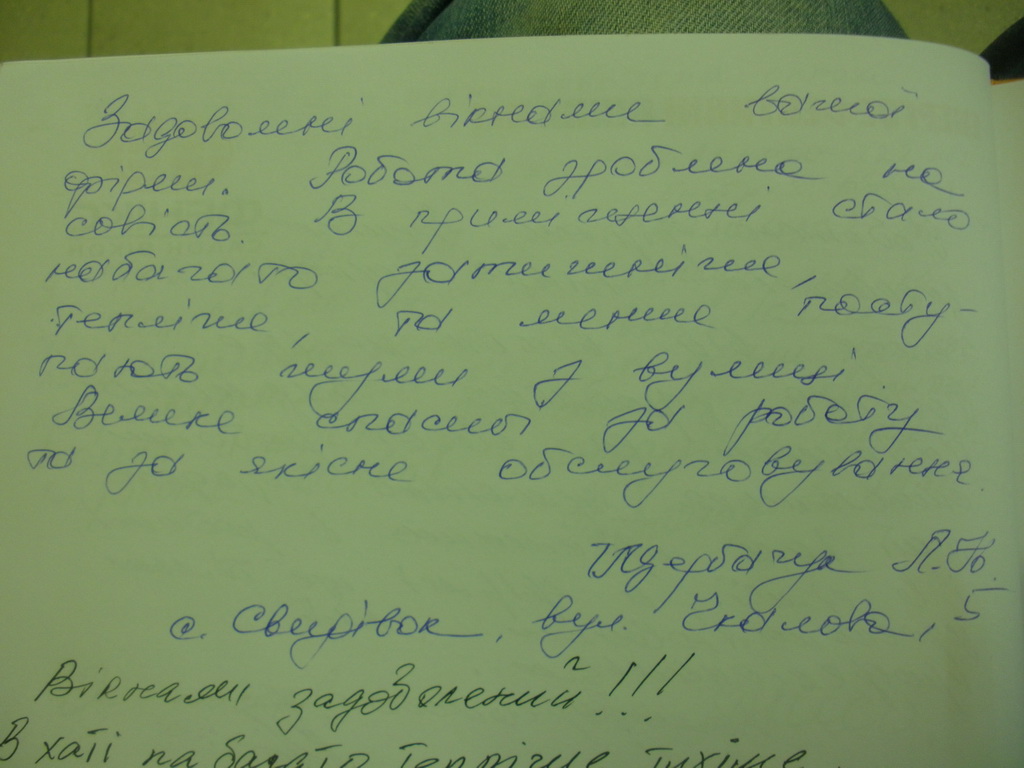 Задоволені вікнами вашої
фірми. Робота зроблена на
совість. В приміщенні стало
набагато затишніше,
тепліше, та менше посту-
пають шуми з вулиці.
Велике спасибі за роботу
та за якісне обслуговування.
Щербачук Л.Ю.
с. Свидівок, вул. Чкалова, 5
Вікнами задоволений!!!
В хаті набагато тепліше тихіше